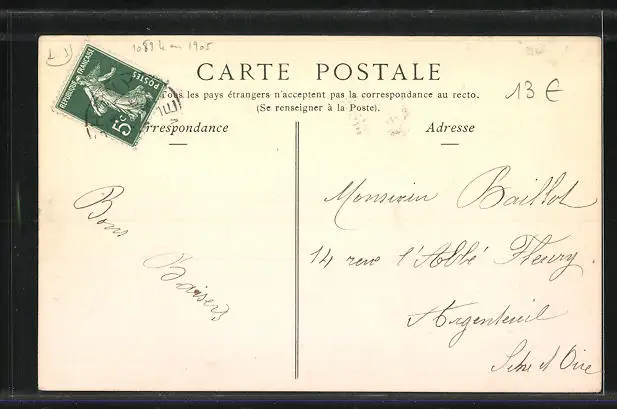 1089 le an 1905
REPUBLIQUE FRANÇAISE
POSTES
5c
CARTE POSTALE
Tous les pays étrangers n'acceptent pas la correspondance au recto.
(Se renseigner à la Poste).
13 €
rrespondance
Adresse
Bons
Baisers
Monsieur Baillot
14 rue l'Abbé Fleury.
Argenteuil
Seine et Oise